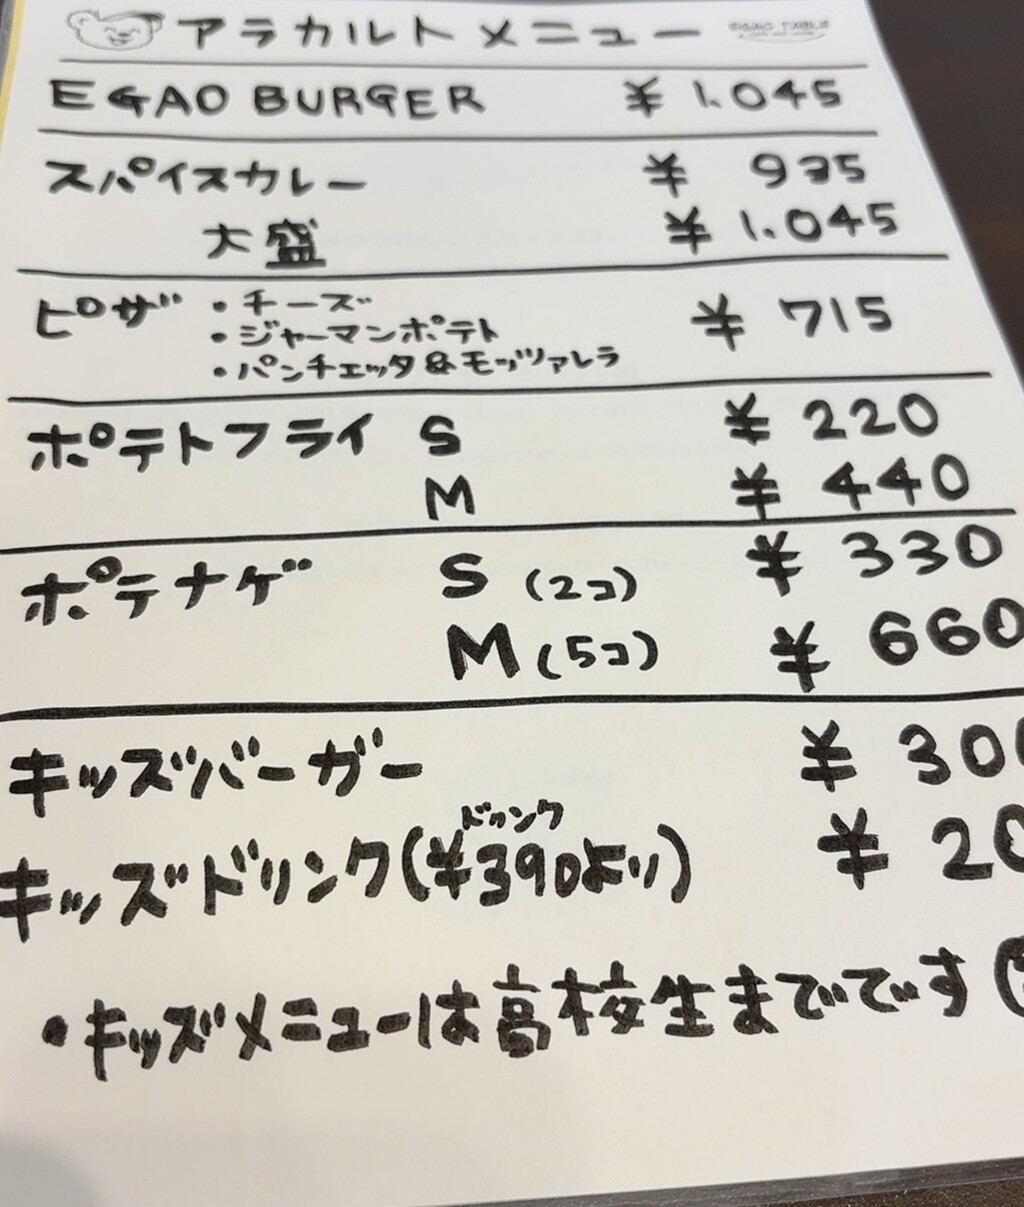 アラカルトメニュー
EGAO BURGER ¥ 1,045
スパイスカレー ¥ 935
大盛 ¥ 1,045
ピザ ・チーズ ¥ 715
・ジャーマンポテト
・パンチェッタ&モッツァレラ
ポテトフライ S ¥ 220
M ¥ 440
ポテナゲ S (2コ) ¥ 330
M (5コ) ¥ 660
キッズバーガー ¥ 300
ドリンク
キッズドリンク(¥390より) ¥ 20
・キッズメニューは高校生までです